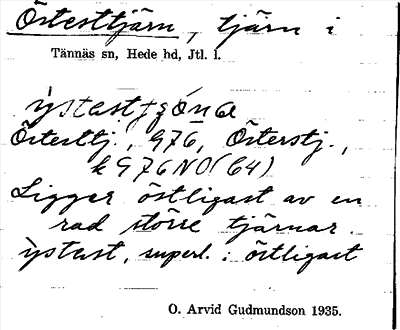 Östesttjärn, tjärn i
Tännäs sn, Hede hd, Jtl. l.
Östesttj., G76, Österstj.,
k G76NO(64)
Ligger östligast av en
rad större tjärnar.
ỳstest, superl. : östligast
O. Arvid Gudmundson 1935.